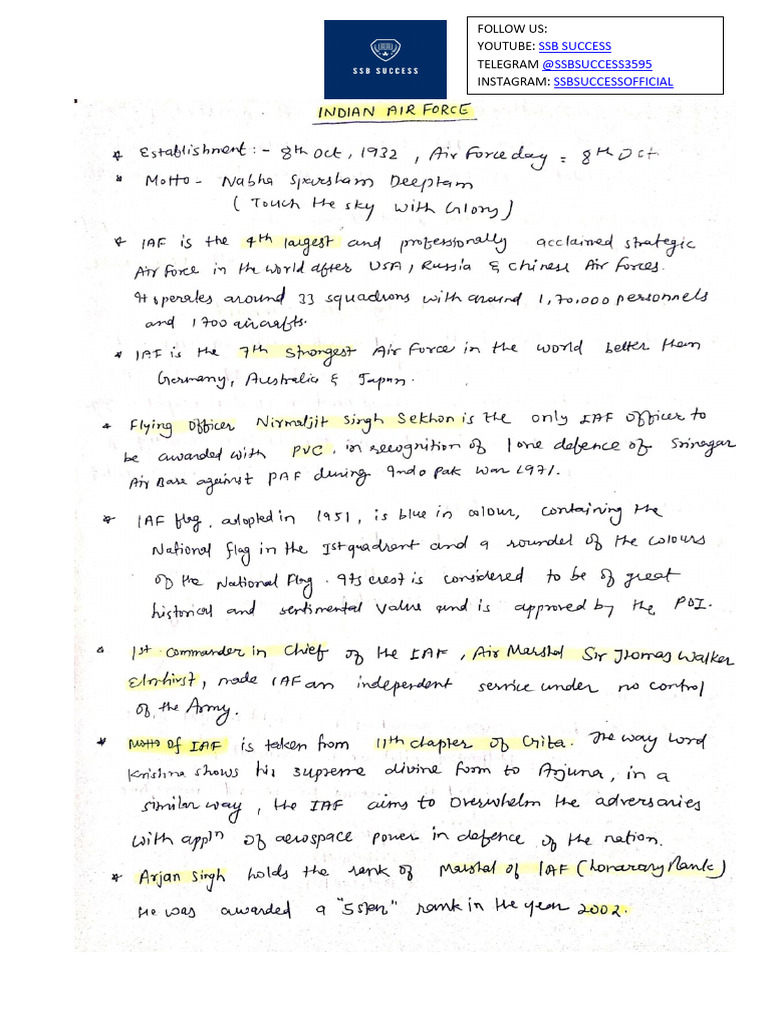 SSB SUCCESS
FOLLOW US:
YOUTUBE: SSB SUCCESS
TELEGRAM @SSBSUCCESS3595
INSTAGRAM: SSBSUCCESSOFFICIAL
INDIAN AIR FORCE
* Establishment:- 8th Oct, 1932, Air Force day = 8th Oct
* Motto - Nabha Sparsham Deeptam
(Touch the sky with Glory)
* IAF is the 4th largest and professionally acclaimed strategic
Air Force in the world after USA, Russia & Chinese Air Forces.
It operates around 33 squadrons with around 1,70,000 personnels
and 1700 aircrafts.
* IAF is the 7th Strongest Air Force in the world better them
Germany, Australia & Japan.
* Flying Officer Nirmaljit Singh Sekhon is the only IAF officer to
be awarded with PVC, in recognition of lone defence of Srinagar
Air Base against PAF during Indo Pak War 1971.
* IAF flag, adopted in 1951, is blue in colour, containing the
National flag in the Ist quadrant and a roundel of the colours
of the National Flag. Its crest is considered to be of great
historical and sentimental value and is approved by the POI.
* 1st Commander in Chief of the IAF, Air Marshal Sir Thomas Walker
Elmhirst, made IAF an independent service under no control
of the Army.
* Motto of IAF is taken from 11th chapter of Gita. The way Lord
Krishna shows his supreme divine form to Arjuna, in a
similar way, the IAF aims to overwhelm the adversaries
with appln of aerospace power in defence of the nation.
* Arjan Singh holds the rank of Marshal of IAF (honorary Rank)
He was awarded a "5 star" rank in the year 2002.